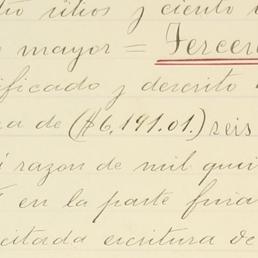 tro sitios y ciento
mayor = Tercero
ificado y descrito
a de ($6,191.01.) seis
razon de mil qui
en la parte fina
citada escritura de